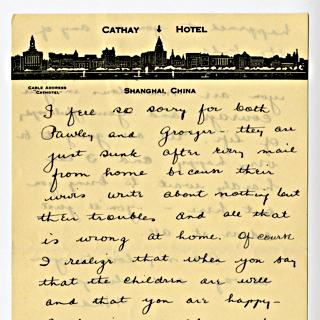 CATHAY HOTEL
CABLE ADDRESS
"CATHOTEL"
SHANGHAI, CHINA
I feel so sorry for both
Pawley and Groeger - they are
just sunk after every mail
from home because their
wives write about nothing but
their troubles and all that
is wrong at home. Of course
I realize that when you say
that the children are well
and that you are happy-